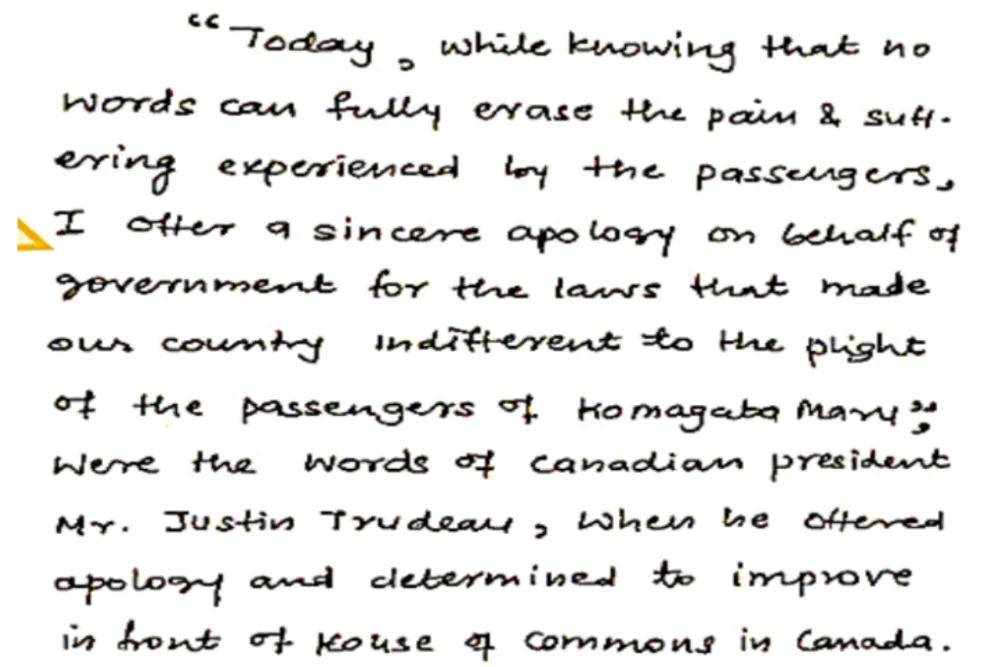 “Today, while knowing that no
words can fully erase the pain & suff-
ering experienced by the passengers,
I offer a sincere apology on behalf of
government for the laws that made
our country indifferent to the plight
of the passengers of Komagata Maru”,
were the words of Canadian president
Mr. Justin Trudeau, when he offered
apology and determined to improve
in front of House of Commons in Canada.